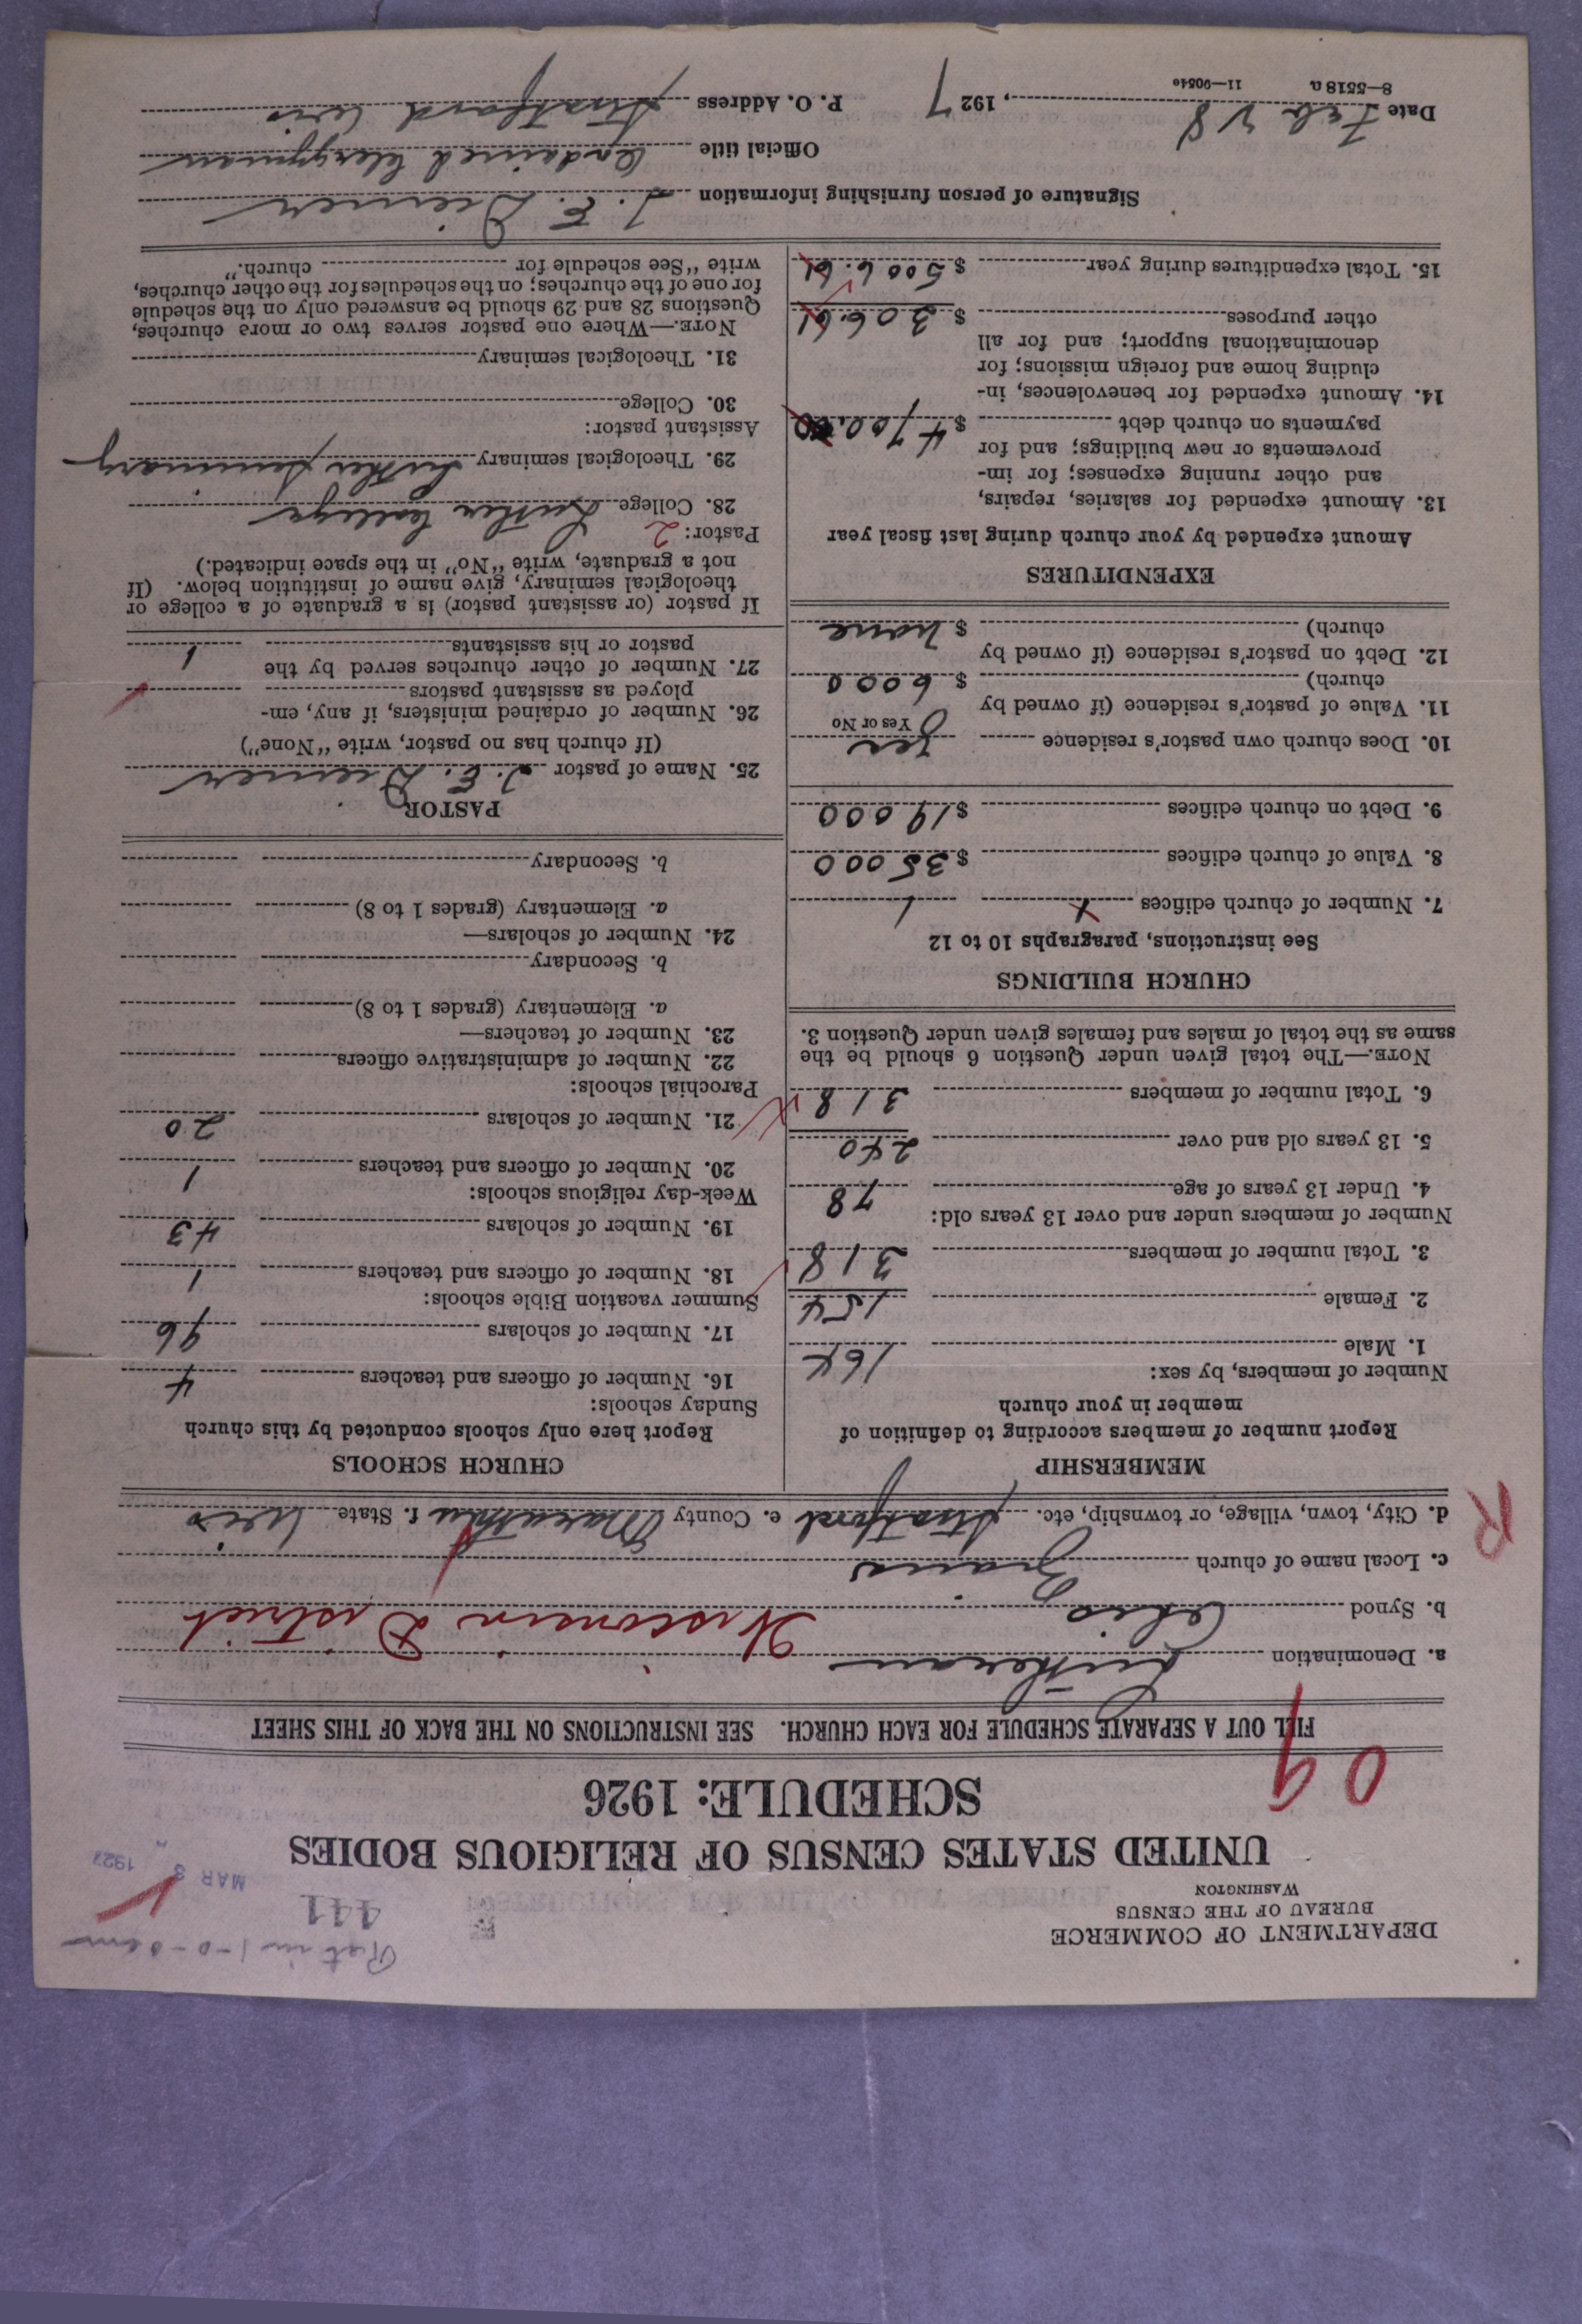 DEPARTMENT OF COMMERCE
BUREAU OF THE CENSUS
WASHINGTON
441
MAR 8 1927
UNITED STATES CENSUS OF RELIGIOUS BODIES
SCHEDULE: 1926
09
FILL OUT A SEPARATE SCHEDULE FOR EACH CHURCH. SEE INSTRUCTIONS ON THE BACK OF THIS SHEET
a. Denomination Lutheran
b. Synod Ohio Wisconsin District
c. Local name of church
d. City, town, village, or township, etc. Stratford e. County Marathon f. State Wis
R
MEMBERSHIP
Report number of members according to definition of
member in your church
Number of members, by sex:
1. Male 164
2. Female 154
3. Total number of members 318
Number of members under and over 13 years old:
4. Under 13 years of age 78
5. 13 years old and over 240
6. Total number of members 318
NOTE.—The total given under Question 6 should be the
same as the total of males and females given under Question 3.
CHURCH BUILDINGS
See instructions, paragraphs 10 to 12
7. Number of church edifices 1
8. Value of church edifices $ 35000
9. Debt on church edifices $ 19000
10. Does church own pastor's residence Yes
Yes or No
11. Value of pastor's residence (if owned by
church) $ 6000
12. Debt on pastor's residence (if owned by
church) $ none
EXPENDITURES
Amount expended by your church during last fiscal year
13. Amount expended for salaries, repairs,
and other running expenses; for im-
provements or new buildings; and for
payments on church debt $ 4700.00
14. Amount expended for benevolences, in-
cluding home and foreign missions; for
denominational support; and for all
other purposes $ 306.61
15. Total expenditures during year $ 5006.61
CHURCH SCHOOLS
Report here only schools conducted by this church
Sunday schools:
16. Number of officers and teachers 4
17. Number of scholars 96
Summer vacation Bible schools:
18. Number of officers and teachers 1
19. Number of scholars 43
Week-day religious schools:
20. Number of officers and teachers 1
21. Number of scholars 20
Parochial schools:
22. Number of administrative officers
23. Number of teachers—
a. Elementary (grades 1 to 8)
b. Secondary
24. Number of scholars—
a. Elementary (grades 1 to 8)
b. Secondary
PASTOR
25. Name of pastor J. E. Diemer
(If church has no pastor, write "None")
26. Number of ordained ministers, if any, em-
ployed as assistant pastors
27. Number of other churches served by the
pastor or his assistants 1
If pastor (or assistant pastor) is a graduate of a college or
theological seminary, give name of institution below. (If
not a graduate, write "No" in the space indicated.)
Pastor: 2
28. College Luther College
29. Theological seminary Luther Seminary
Assistant pastor:
30. College
31. Theological seminary
NOTE.—Where one pastor serves two or more churches,
Questions 28 and 29 should be answered only on the schedule
for one of the churches; on the schedules for the other churches,
write "See schedule for church."
Signature of person furnishing information J. E. Diemer
Official title Ordained Clergyman
Date Feb 28, 1927 P. O. Address Stratford Wis
8—5518 a 11—9054c